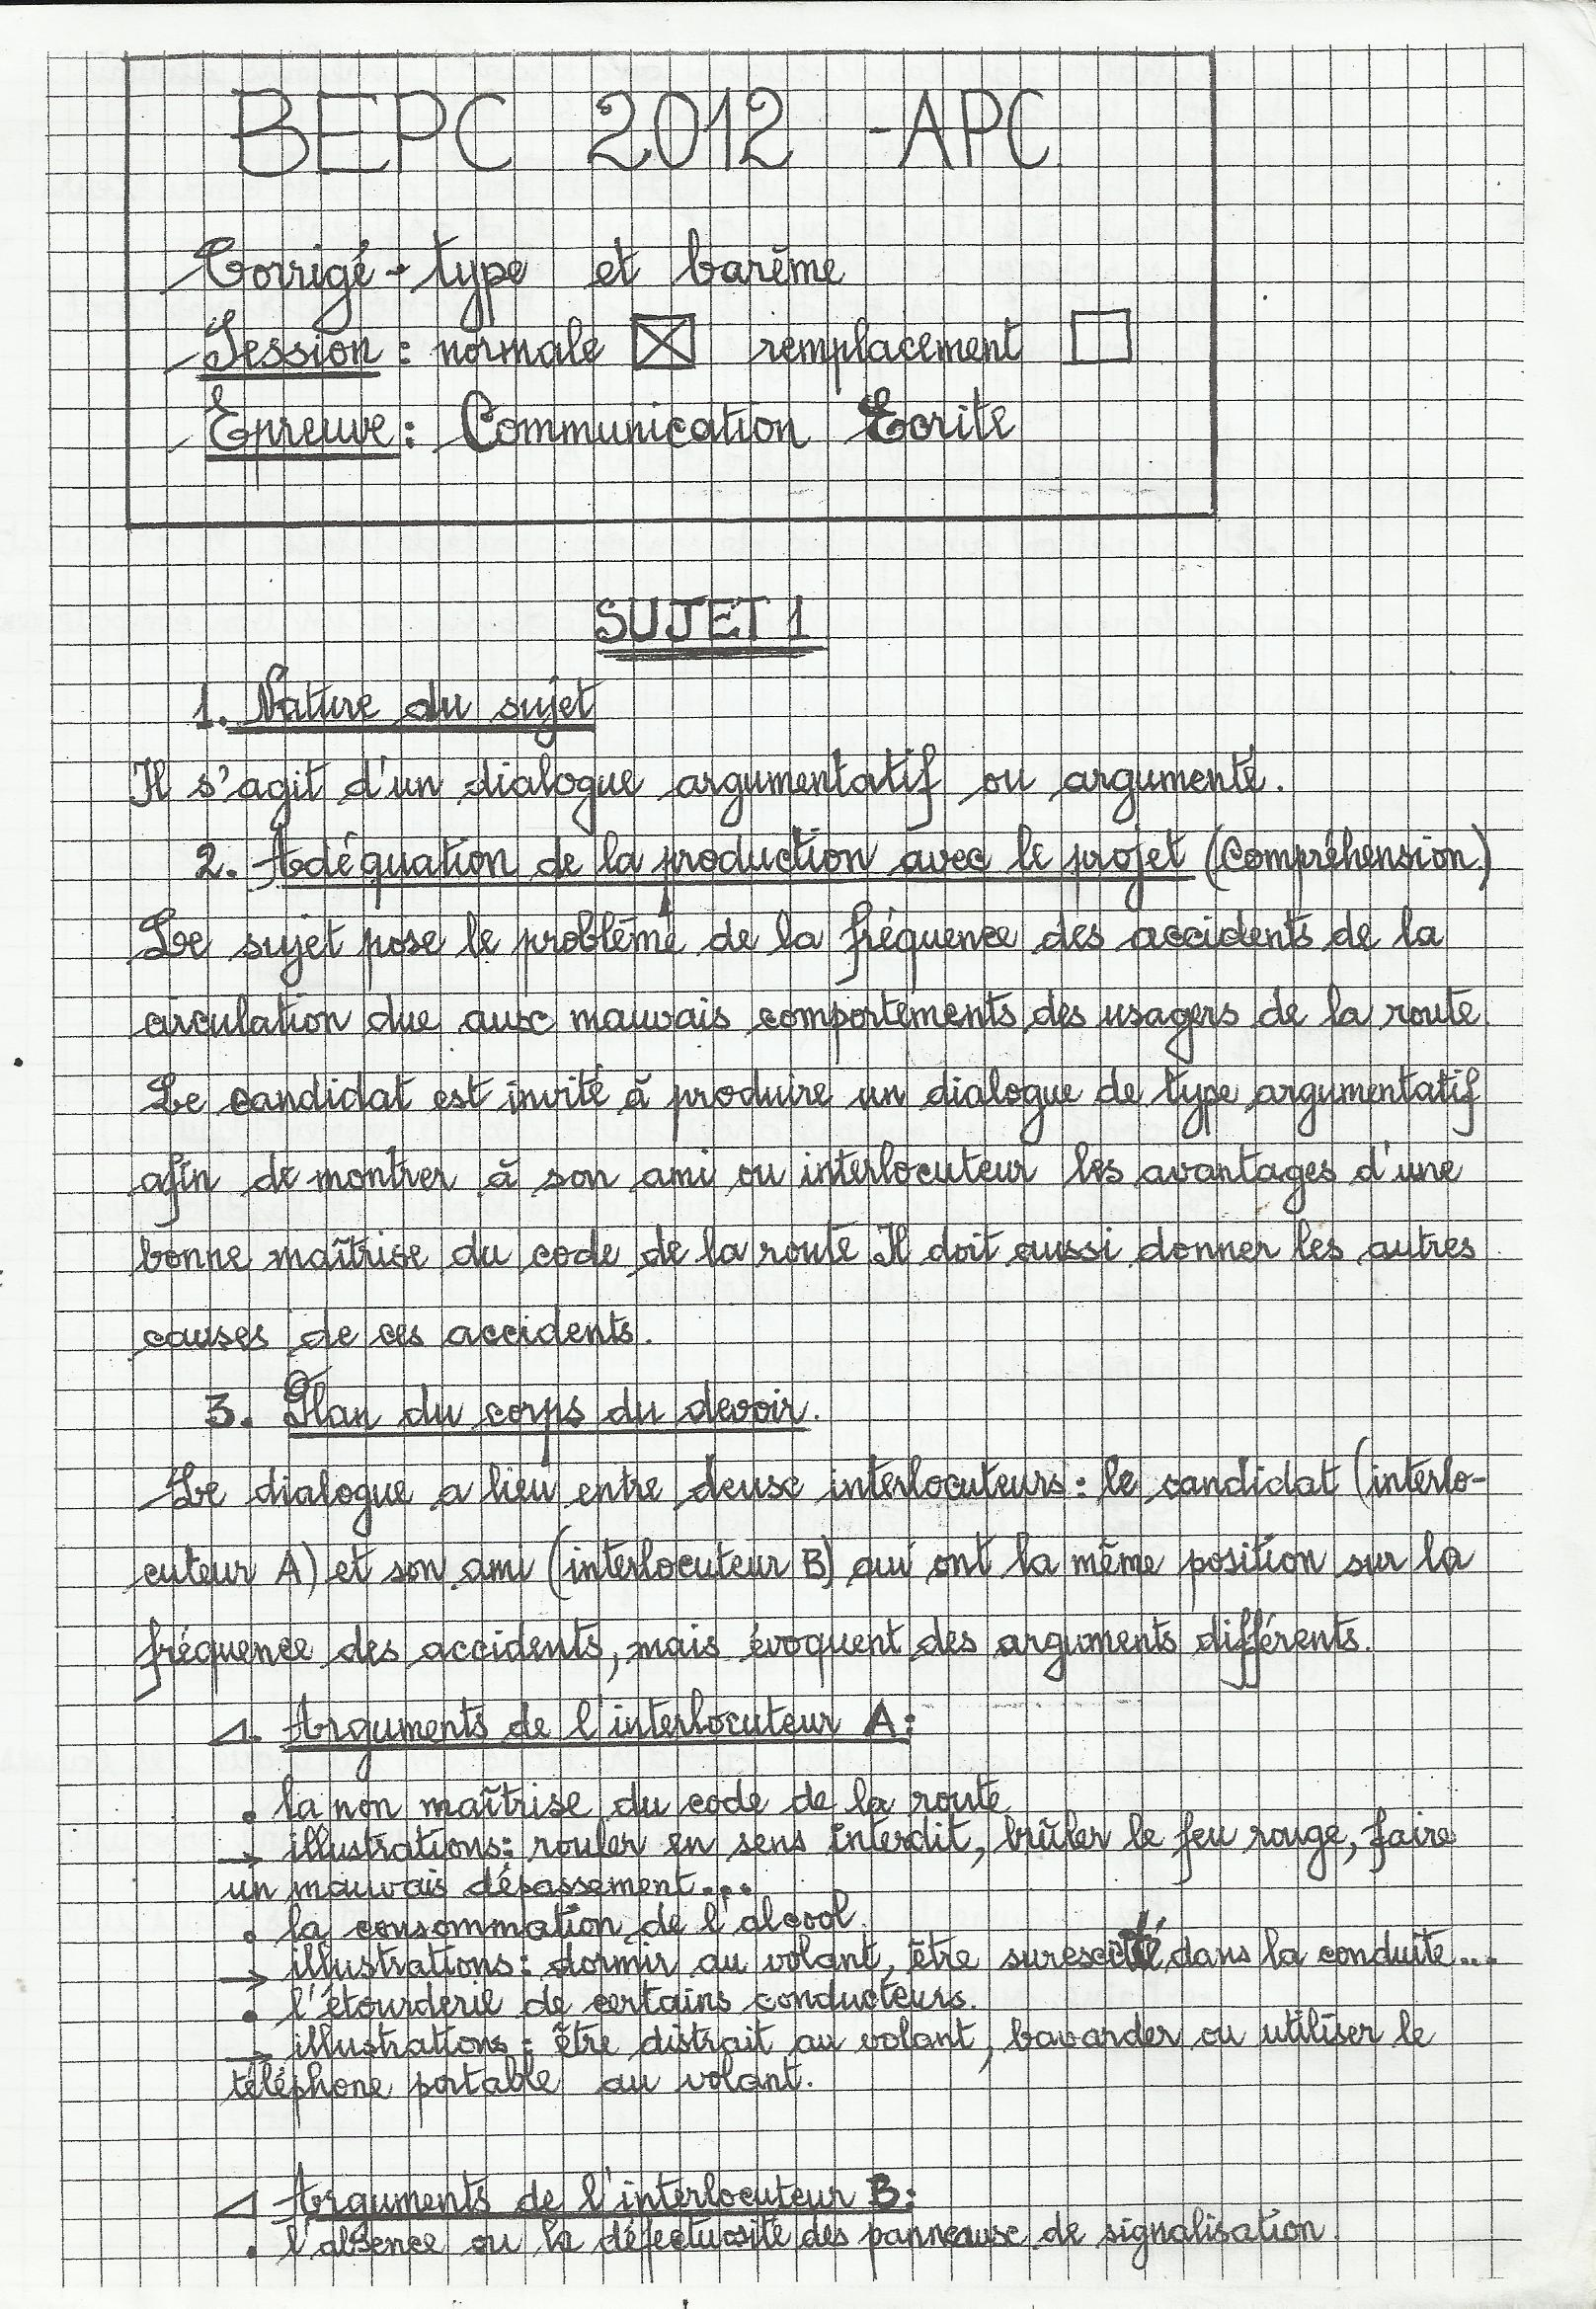 BEPC 2012 - APC
Corrigé-type et barème
Session : normale remplacement
Epreuve : Communication Ecrite
SUJET 1
1. Nature du sujet
Il s'agit d'un dialogue argumentatif ou argumenté.
2. Adéquation de la production avec le projet (Compréhension)
Le sujet pose le problème de la fréquence des accidents de la
circulation due aux mauvais comportements des usagers de la route.
Le candidat est invité à produire un dialogue de type argumentatif
afin de montrer à son ami ou interlocuteur les avantages d'une
bonne maîtrise du code de la route. Il doit aussi donner les autres
causes de ces accidents.
3. Plan du corps du devoir.
Le dialogue a lieu entre deux interlocuteurs : le candidat (interlo-
cuteur A) et son ami (interlocuteur B) qui ont la même position sur la
fréquence des accidents, mais évoquent des arguments différents.
Arguments de l'interlocuteur A :
• la non maîtrise du code de la route
→ illustrations : rouler en sens interdit, brûler le feu rouge, faire
un mauvais dépassement...
• la consommation de l'alcool.
→ illustrations : dormir au volant, être surexcité dans la conduite...
• l'étourderie de certains conducteurs.
→ illustrations : être distrait au volant, bavarder ou utiliser le
téléphone portable au volant.
Arguments de l'interlocuteur B :
• l'absence ou la défectuosité des panneaux de signalisation.